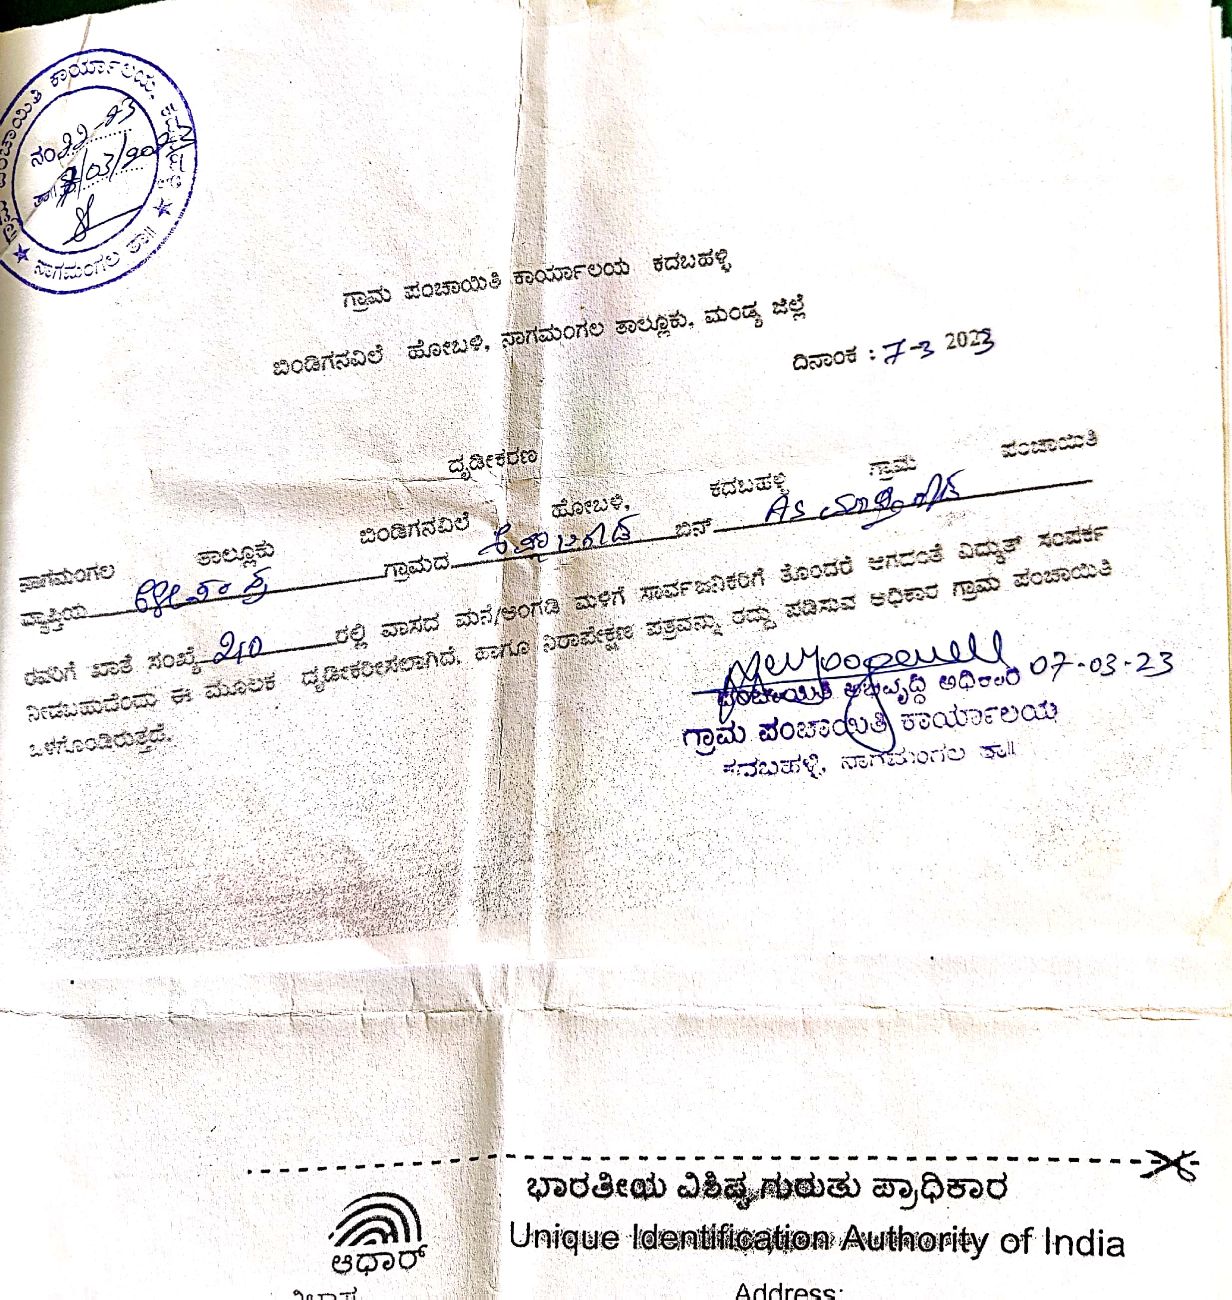 ಕಾರ್ಯಾಲಯ,
ನಂ 22-23
7/03/2023
ನಾಗಮಂಗಲ ತಾ||
ಗ್ರಾಮ ಪಂಚಾಯಿತಿ ಕಾರ್ಯಾಲಯ ಕದಬಹಳ್ಳಿ
ಬಿಂಡಿಗನವಿಲೆ ಹೋಬಳಿ, ನಾಗಮಂಗಲ ತಾಲ್ಲೂಕು, ಮಂಡ್ಯ ಜಿಲ್ಲೆ
ದಿನಾಂಕ : 7-3 2023
ದೃಡೀಕರಣ
ನಾಗಮಂಗಲ ತಾಲ್ಲೂಕು ಬಿಂಡಿಗನವಿಲೆ ಹೋಬಳಿ, ಕದಬಹಳ್ಳಿ ಗ್ರಾಮ ಪಂಚಾಯಿತಿ
ವ್ಯಾಪ್ತಿಯ ಗ್ರಾಮದ ಬಿನ್ AS
ರವರಿಗೆ ಖಾತೆ ಸಂಖ್ಯೆ 210 ರಲ್ಲಿ ವಾಸದ ಮನೆ/ಅಂಗಡಿ ಮಳಿಗೆ ಸಾರ್ವಜನಿಕರಿಗೆ ತೊಂದರೆ ಆಗದಂತೆ ವಿದ್ಯುತ್ ಸಂಪರ್ಕ
ನೀಡಬಹುದೆಂದು ಈ ಮೂಲಕ ದೃಡೀಕರೀಸಲಾಗಿದೆ. ಹಾಗೂ ನಿರಾಪೇಕ್ಷಣ ಪತ್ರವನ್ನು ರದ್ದು ಪಡಿಸುವ ಅಧಿಕಾರ ಗ್ರಾಮ ಪಂಚಾಯಿತಿ
ಒಳಗೊಂಡಿರುತ್ತದೆ.
07-03-23
ಪಂಚಾಯಿತಿ ಅಭಿವೃದ್ಧಿ ಅಧಿಕಾರಿ
ಗ್ರಾಮ ಪಂಚಾಯಿತಿ ಕಾರ್ಯಾಲಯ
ಕದಬಹಳ್ಳಿ, ನಾಗಮಂಗಲ ತಾ||
ಭಾರತೀಯ ವಿಶಿಷ್ಟ ಗುರುತು ಪ್ರಾಧಿಕಾರ
Unique Identification Authority of India
ಆಧಾರ್
ವಿಳಾಸ
Address: